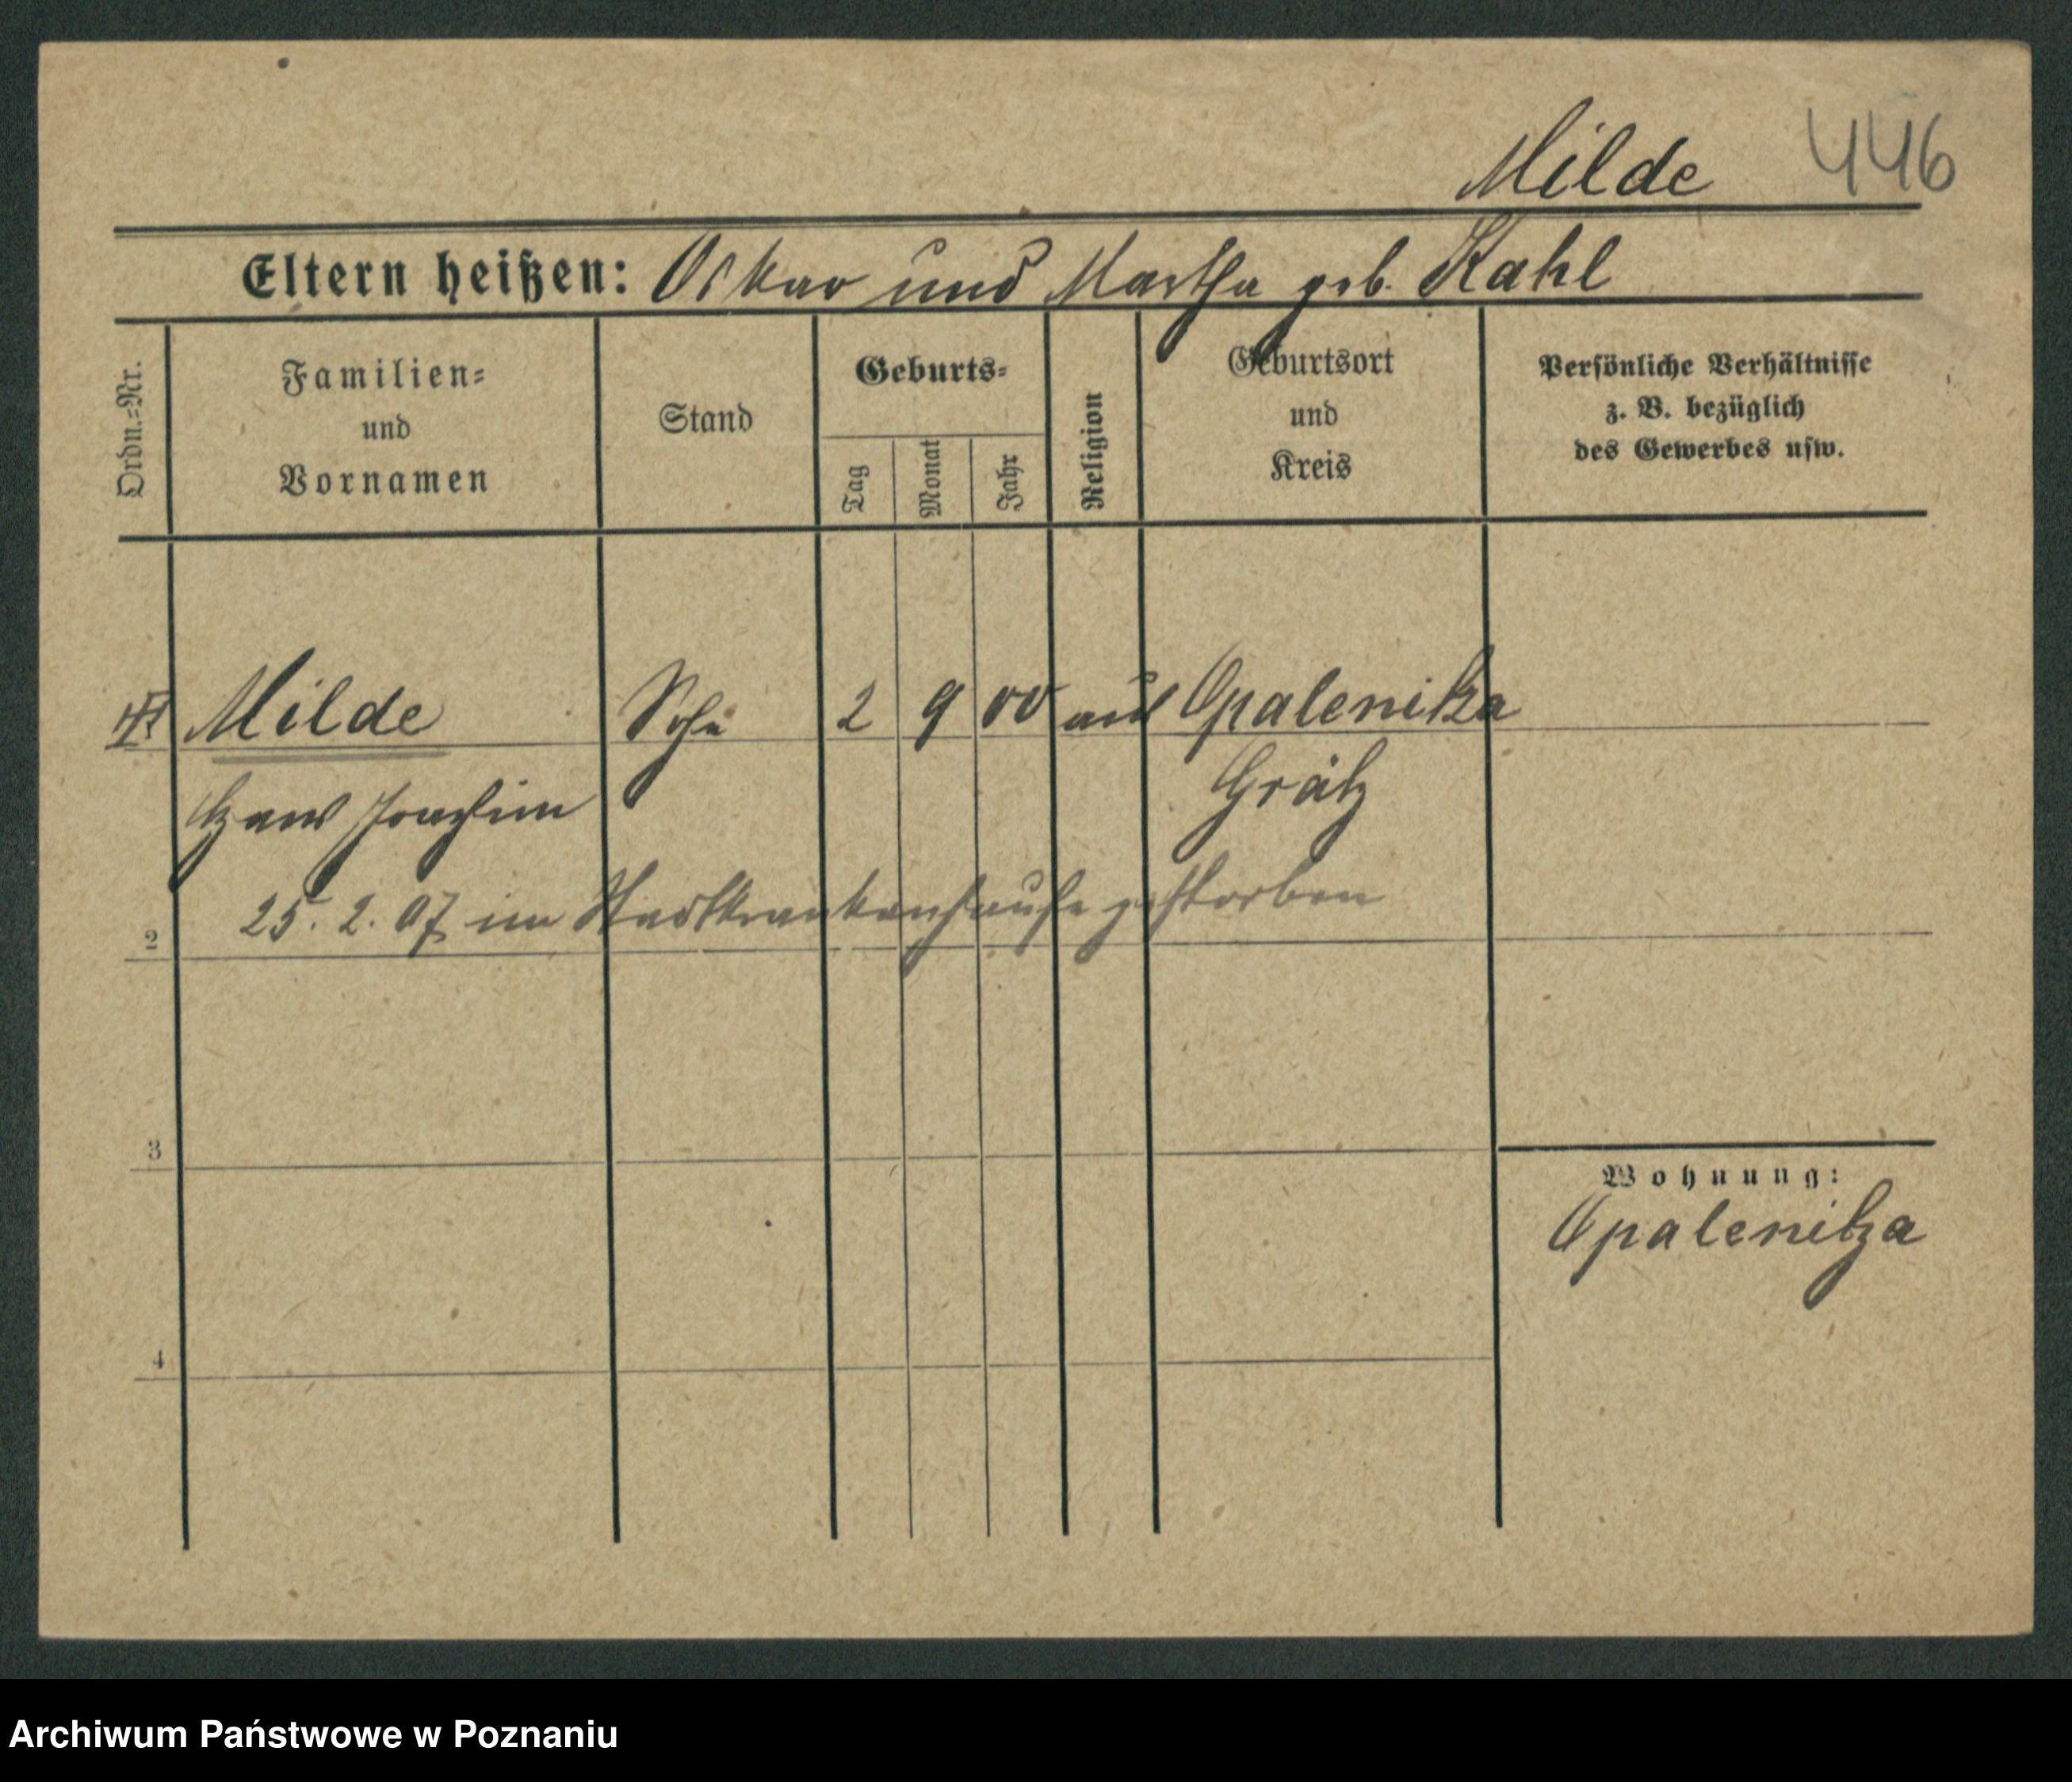 Milde 446
Eltern heißen: Oskar und Martha geb. Kahl
Ordn.=Nr.
Familien=
und
Vornamen
Stand
Geburts=
Tag
Monat
Jahr
Religion
Geburtsort
und
Kreis
Persönliche Verhältnisse
z. B. bezüglich
des Gewerbes usw.
Milde Sohn 2 9 00 Opalenitza
Hans Joachim Grätz
25. 2. 07 im Stadtkrankenhause gestorben
2
3
Wohnung:
Opalenitza
4
Archiwum Państwowe w Poznaniu